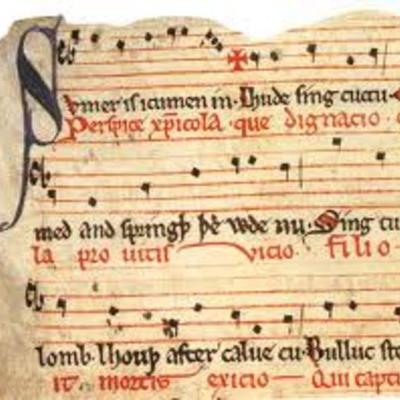 Sumer is icumen in· Lhude sing cuccu·
Perspice xp̄icola· que dignacio·
med and springþ þe wde nu· Sing cu
la pro uitis vicio· filio
lomb· lhouþ after calue cu· Bulluc ste
it· mortis exicio— Qui capti